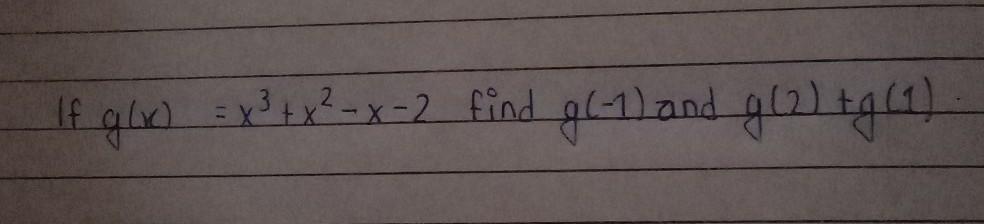 If g(x) = x³ + x² - x - 2 find g(-1) and g(2) + g(1).